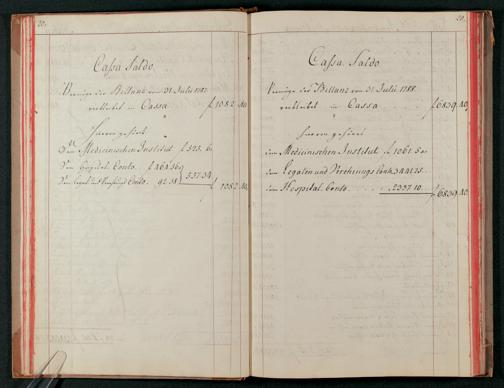 20.
Cassa Saldo.
Vermöge der Billanz vom 31 Julii 1787
verbleibet in Cassa f 1082.40.
Hievon gehört
Dem Medicinischen Institut f 525. 6.
Dem Hospital Conto. f
Dem Legat und Conto. 92.38 537.34. f 1382.40.
20.
Cassa Saldo
Vermöge der Billanz vom 31 Julii 1788.
verbleibet in Cassa f 6839.40.
Hievon gehört
dem Medicinischen Institut f 1061.5
dem Legaten und Verehrungs Conto 3441.25.
dem Hospital Conto. 2337.10. f 6839.40.